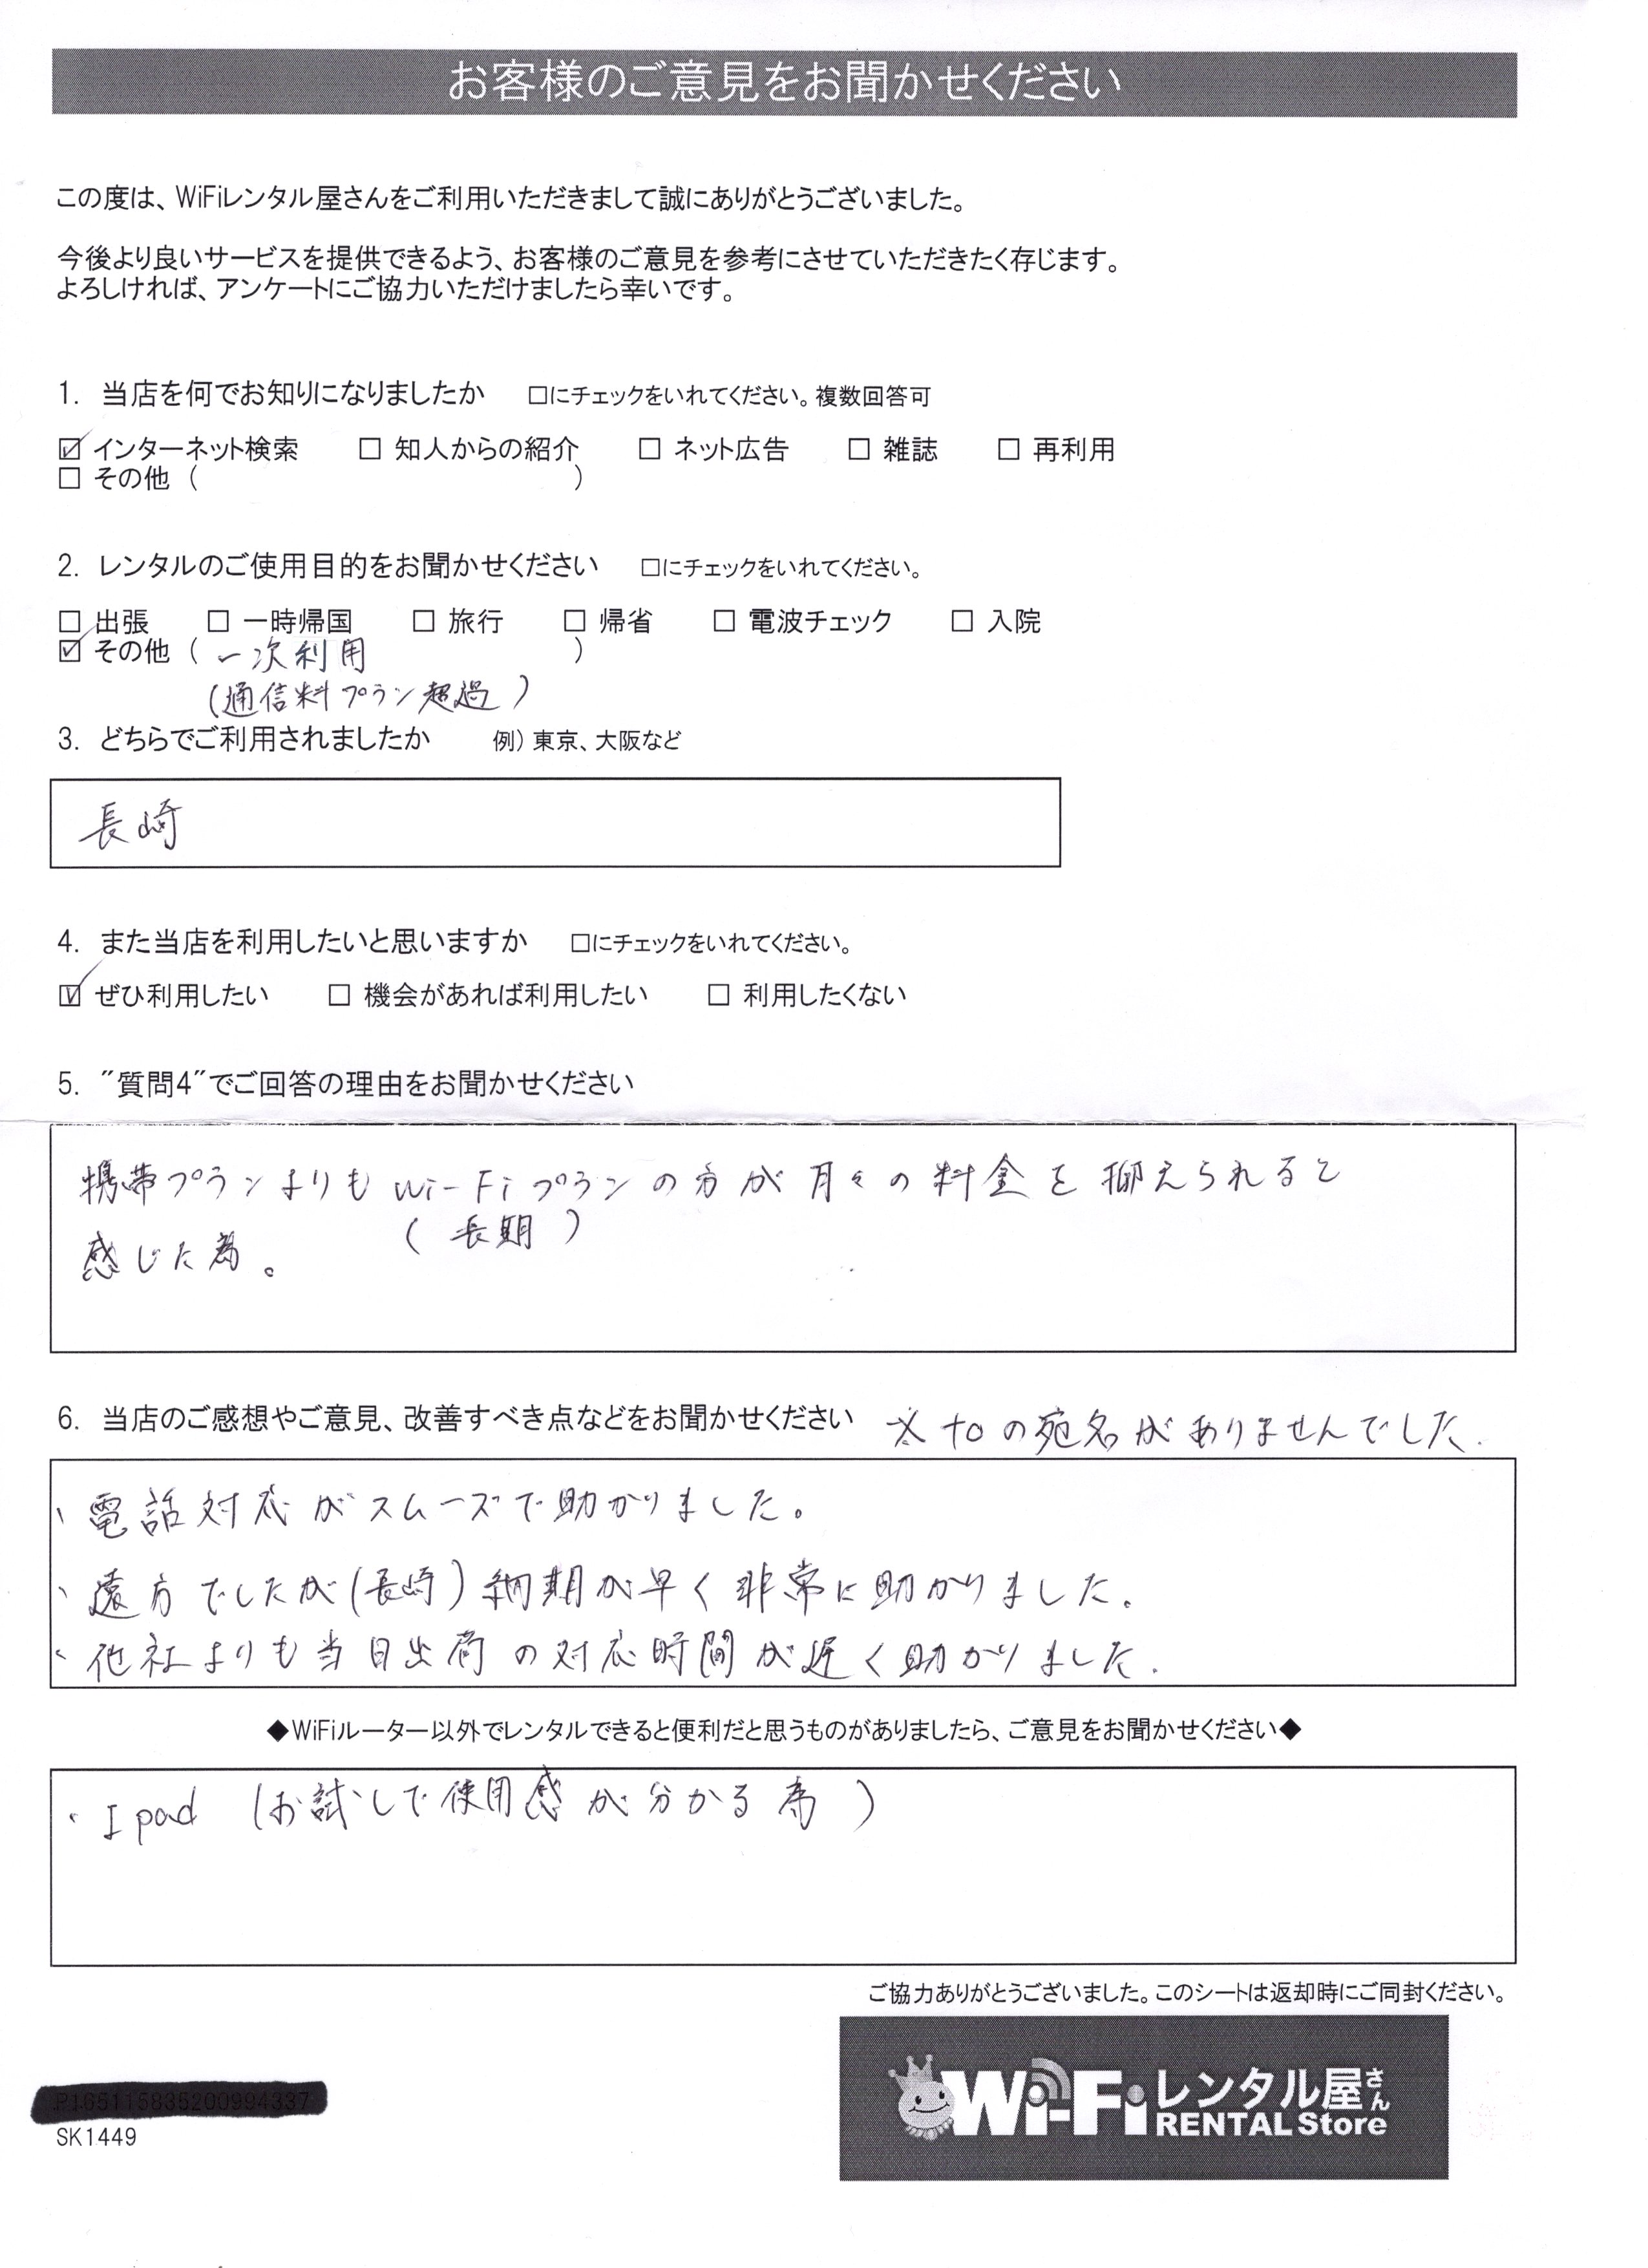 お客様のご意見をお聞かせください
この度は、WiFiレンタル屋さんをご利用いただきまして誠にありがとうございました。
今後より良いサービスを提供できるよう、お客様のご意見を参考にさせていただきたく存じます。
よろしければ、アンケートにご協力いただけましたら幸いです。
1. 当店を何でお知りになりましたか □にチェックをいれてください。複数回答可
☑ インターネット検索 □ 知人からの紹介 □ ネット広告 □ 雑誌 □ 再利用
□ その他 ( )
2. レンタルのご使用目的をお聞かせください □にチェックをいれてください。
□ 出張 □ 一時帰国 □ 旅行 □ 帰省 □ 電波チェック □ 入院
☑ その他 ( 一次利用 )
(通信料プラン超過)
3. どちらでご利用されましたか 例) 東京、大阪など
長崎
4. また当店を利用したいと思いますか □にチェックをいれてください。
☑ ぜひ利用したい □ 機会があれば利用したい □ 利用したくない
5. "質問4"でご回答の理由をお聞かせください
携帯プランよりもWi-Fiプランの方が月々の料金を抑えられると
(長期)
感じた為。
6. 当店のご感想やご意見、改善すべき点などをお聞かせください ※toの宛名がありませんでした.
・電話対応がスムーズで助かりました。
・遠方でしたが(長崎)納期が早く非常に助かりました。
・他社よりも当日出荷の対応時間が遅く助かりました.
◆WiFiルーター以外でレンタルできると便利だと思うものがありましたら、ご意見をお聞かせください◆
・Ipad (お試しで使用感が分かる為)
ご協力ありがとうございました。このシートは返却時にご同封ください。
Wi-Fiレンタル屋さん
RENTAL Store
SK1449